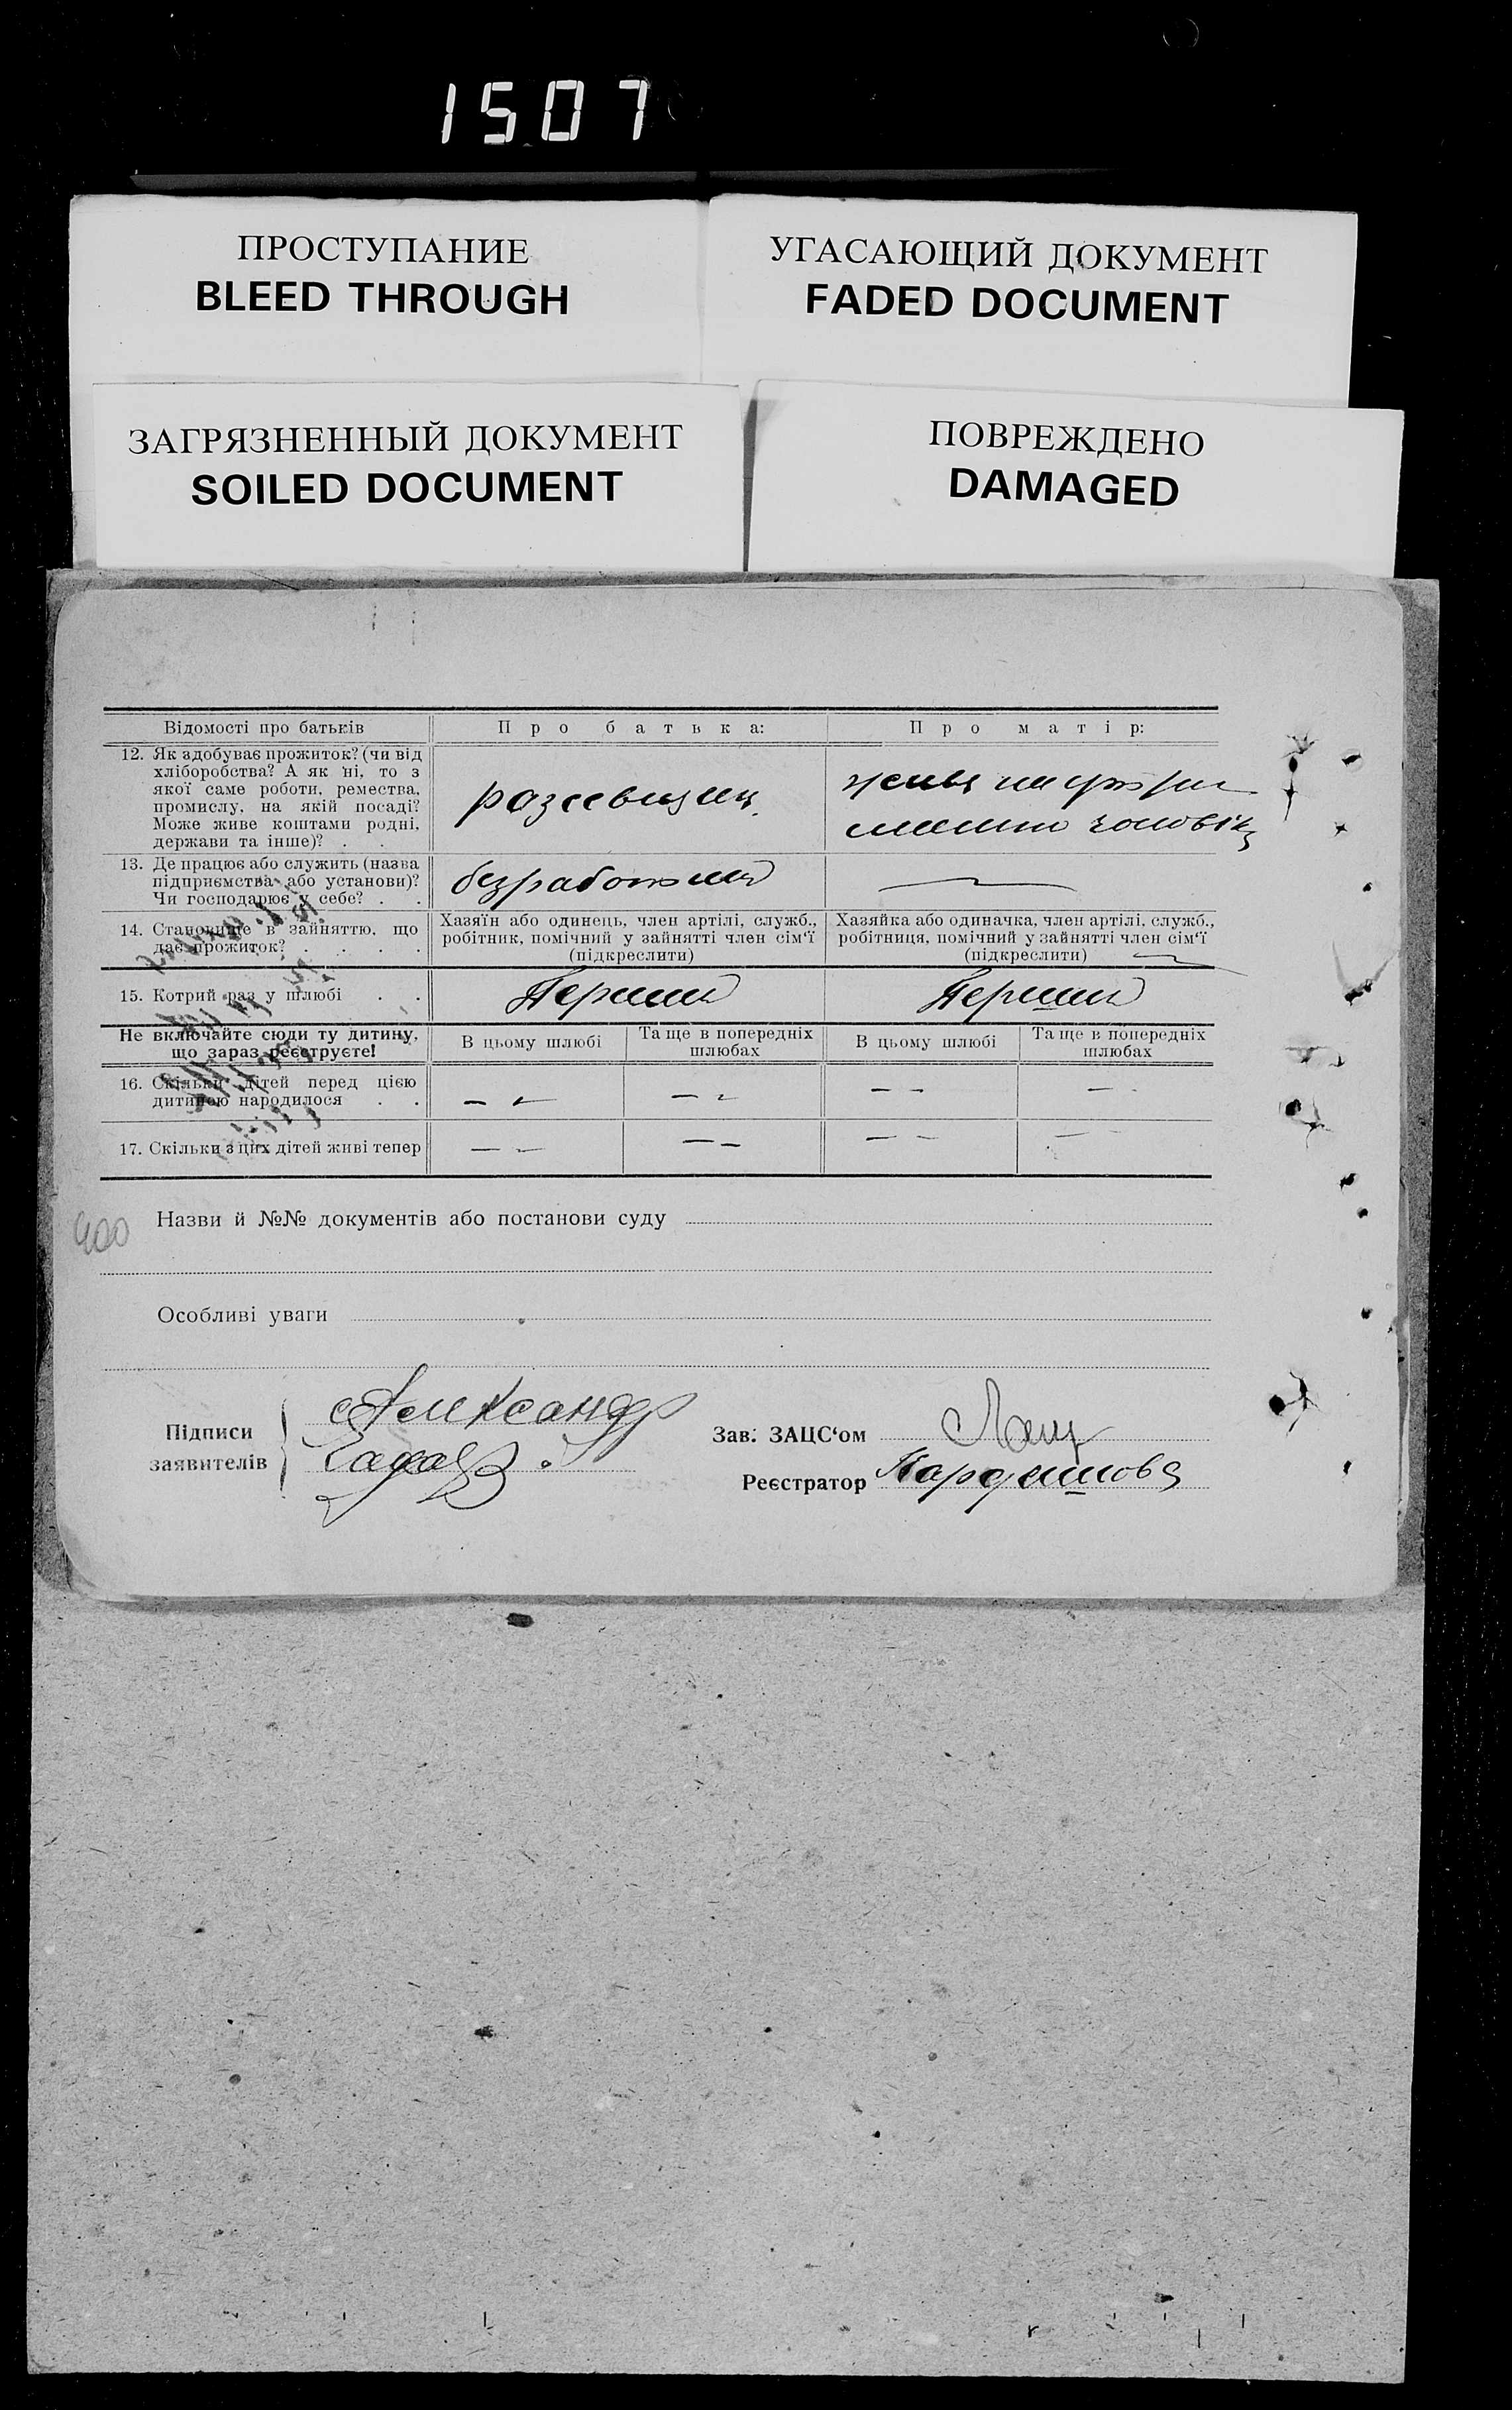 1507
ПРОСТУПАНИЕ
BLEED THROUGH
УГАСАЮЩИЙ ДОКУМЕНТ
FADED DOCUMENT
ЗАГРЯЗНЕННЫЙ ДОКУМЕНТ
SOILED DOCUMENT
ПОВРЕЖДЕНО
DAMAGED
Відомості про батьків
Про батька:
Про матір:
12. Як здобуває прожиток? (чи від
хліборобства? А як ні, то з
якої саме роботи, ремества,
промислу, на якій посаді?
Може живе коштами родні,
держави та інше)? . .
живе на
чоловіка
13. Де працює або служить (назва
підприємства або установи)?
Чи господарює у себе? . .
безработний
—
14. Становище в зайняттю, що
дає прожиток? . . . .
Хазяїн або одинець, член артілі, служб.,
робітник, помічний у зайнятті член сім'ї
(підкреслити)
Хазяйка або одиначка, член артілі, служб.,
робітниця, помічний у зайнятті член сім'ї
(підкреслити)
15. Котрий раз у шлюбі . .
Перший
Перший
Не включайте сюди ту дитину,
що зараз реєструєте!
В цьому шлюбі
Та ще в попередніх
шлюбах
В цьому шлюбі
Та ще в попередніх
шлюбах
16. Скільки дітей перед цією
дитиною народилося . .
— —
— —
— —
— —
17. Скільки з цих дітей живі тепер
— —
— —
— —
— —
400
Назви й №№ документів або постанови суду
Особливі уваги
Підписи
заявителів
Александр
Зав. ЗАЦС'ом
Реєстратор